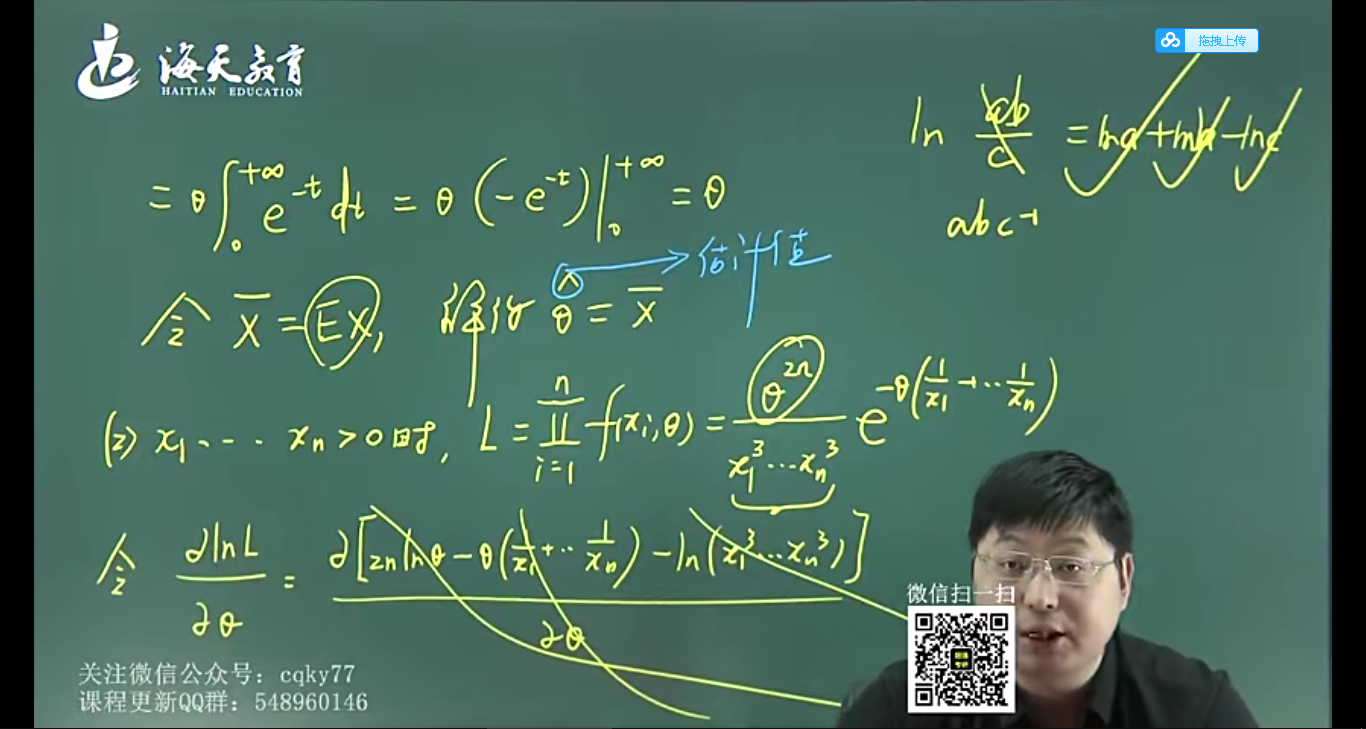 海天教育
HAITIAN EDUCATION
拖拽上传
ln ab/c = lna + lnb - lnc
abc⁻¹
= θ∫₀^{+∞} e^{-t} dt = θ(-e^{-t})|₀^{+∞} = θ
令 X̄ = EX, 解得 θ̂ = X̄ → 估计值
(2) x₁ ... xₙ > 0时, L = ∏_{i=1}^{n} f(xᵢ, θ) = θ^{2n}/(x₁³...xₙ³) e^{-θ(1/x₁+...1/xₙ)}
令 ∂lnL/∂θ = ∂[2n lnθ - θ(1/x₁+...1/xₙ) - ln(x₁³...xₙ³)]/∂θ
微信扫一扫
关注微信公众号：cqky77
课程更新QQ群：548960146